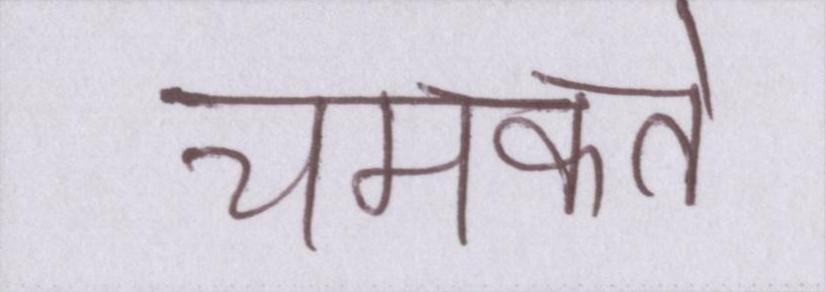 चमकते